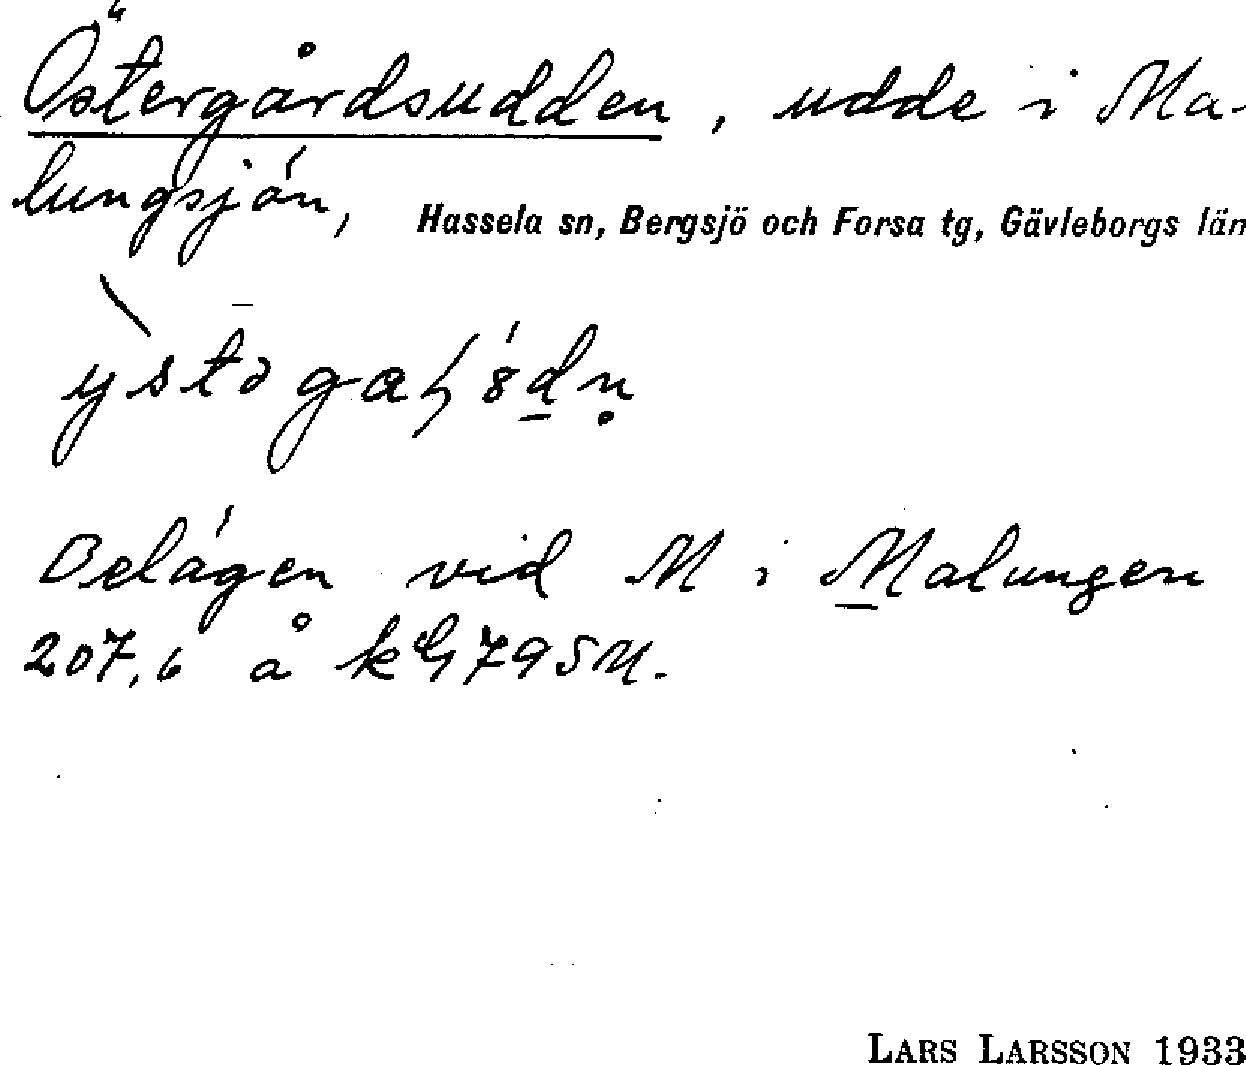 Östergårdsudden, udde i Ma-
lungsjön, Hassela sn, Bergsjö och Forsa tg, Gävleborgs län
Belägen vid M i Malungen
207,6 å
LARS LARSSON 1933